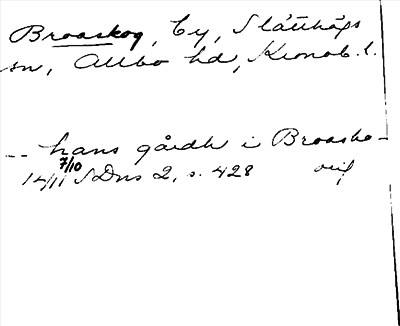 Broaskog, by, Slätthögs
sn, Allbo hd, Kronob. l.
-- hans gårdh i Broasko-
7/10
14/11 SDns 2, s. 428